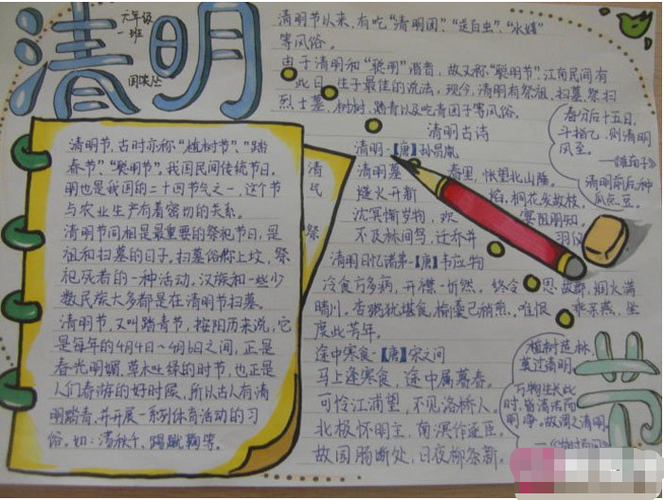 清明
六年级
一班
清明节以来，有吃"清明团"、"送白虫"、
等风俗。
由于清明和"聪明"谐音，故又称"聪明节"，江南民间有
此日 生子最佳的说法，现今，清明有祭祖、扫墓、祭扫
烈士墓、植树、踏青以及吃青团子等风俗。
清明古诗
清明·【唐】孙昌胤
清明暮 春里，怅望北山陲。
燧火开新 焰，桐花发故枝。
沈冥惟岁物，欢 宴阻朋知。
不及林间鸟，迁乔并 羽仪
清明日忆诸弟·【唐】韦应物
冷食方多病，开襟一忻然。终令 思故郡，烟火满
晴川。杏粥犹堪食，榆羹已稍煎。唯恨 乖亲燕，坐
度此芳年。
途中寒食·【唐】宋之问
马上逢寒食，途中属暮春。
可怜江浦望，不见洛桥人。
北极怀明主，南溟作逐臣。
故园肠断处，日夜柳条新。
春分后十五日，
斗指乙，则清明
风至。
清明前后种
瓜点豆。
清明节，古时亦称"植树节"、"踏
春节"、"聪明节"，我国民间传统节日。
明也是我国的二十四节气之一，这个节
与农业生产有着密切的关系。
清明节间相是最重要的祭祀节日，是
祖和扫墓的日子。扫墓俗称上坟，祭
祀死者的一种活动，汉族和一些少
数民族大多都是在清明节扫墓。
清明节，又叫踏青节，按阳历来说，它
是每年的4月4日~4月6日之间，正是
春光明媚，草木吐绿的时节，也正是
人们春游的好时展，所以古人有清
明踏青，并开展一系列体育活动的习
俗。如：荡秋千、踢蹴鞠等。
清
气
祭
植树造林，
莫过清明。
万物生长此
时，皆清洁而
明净。故谓之清明。
节